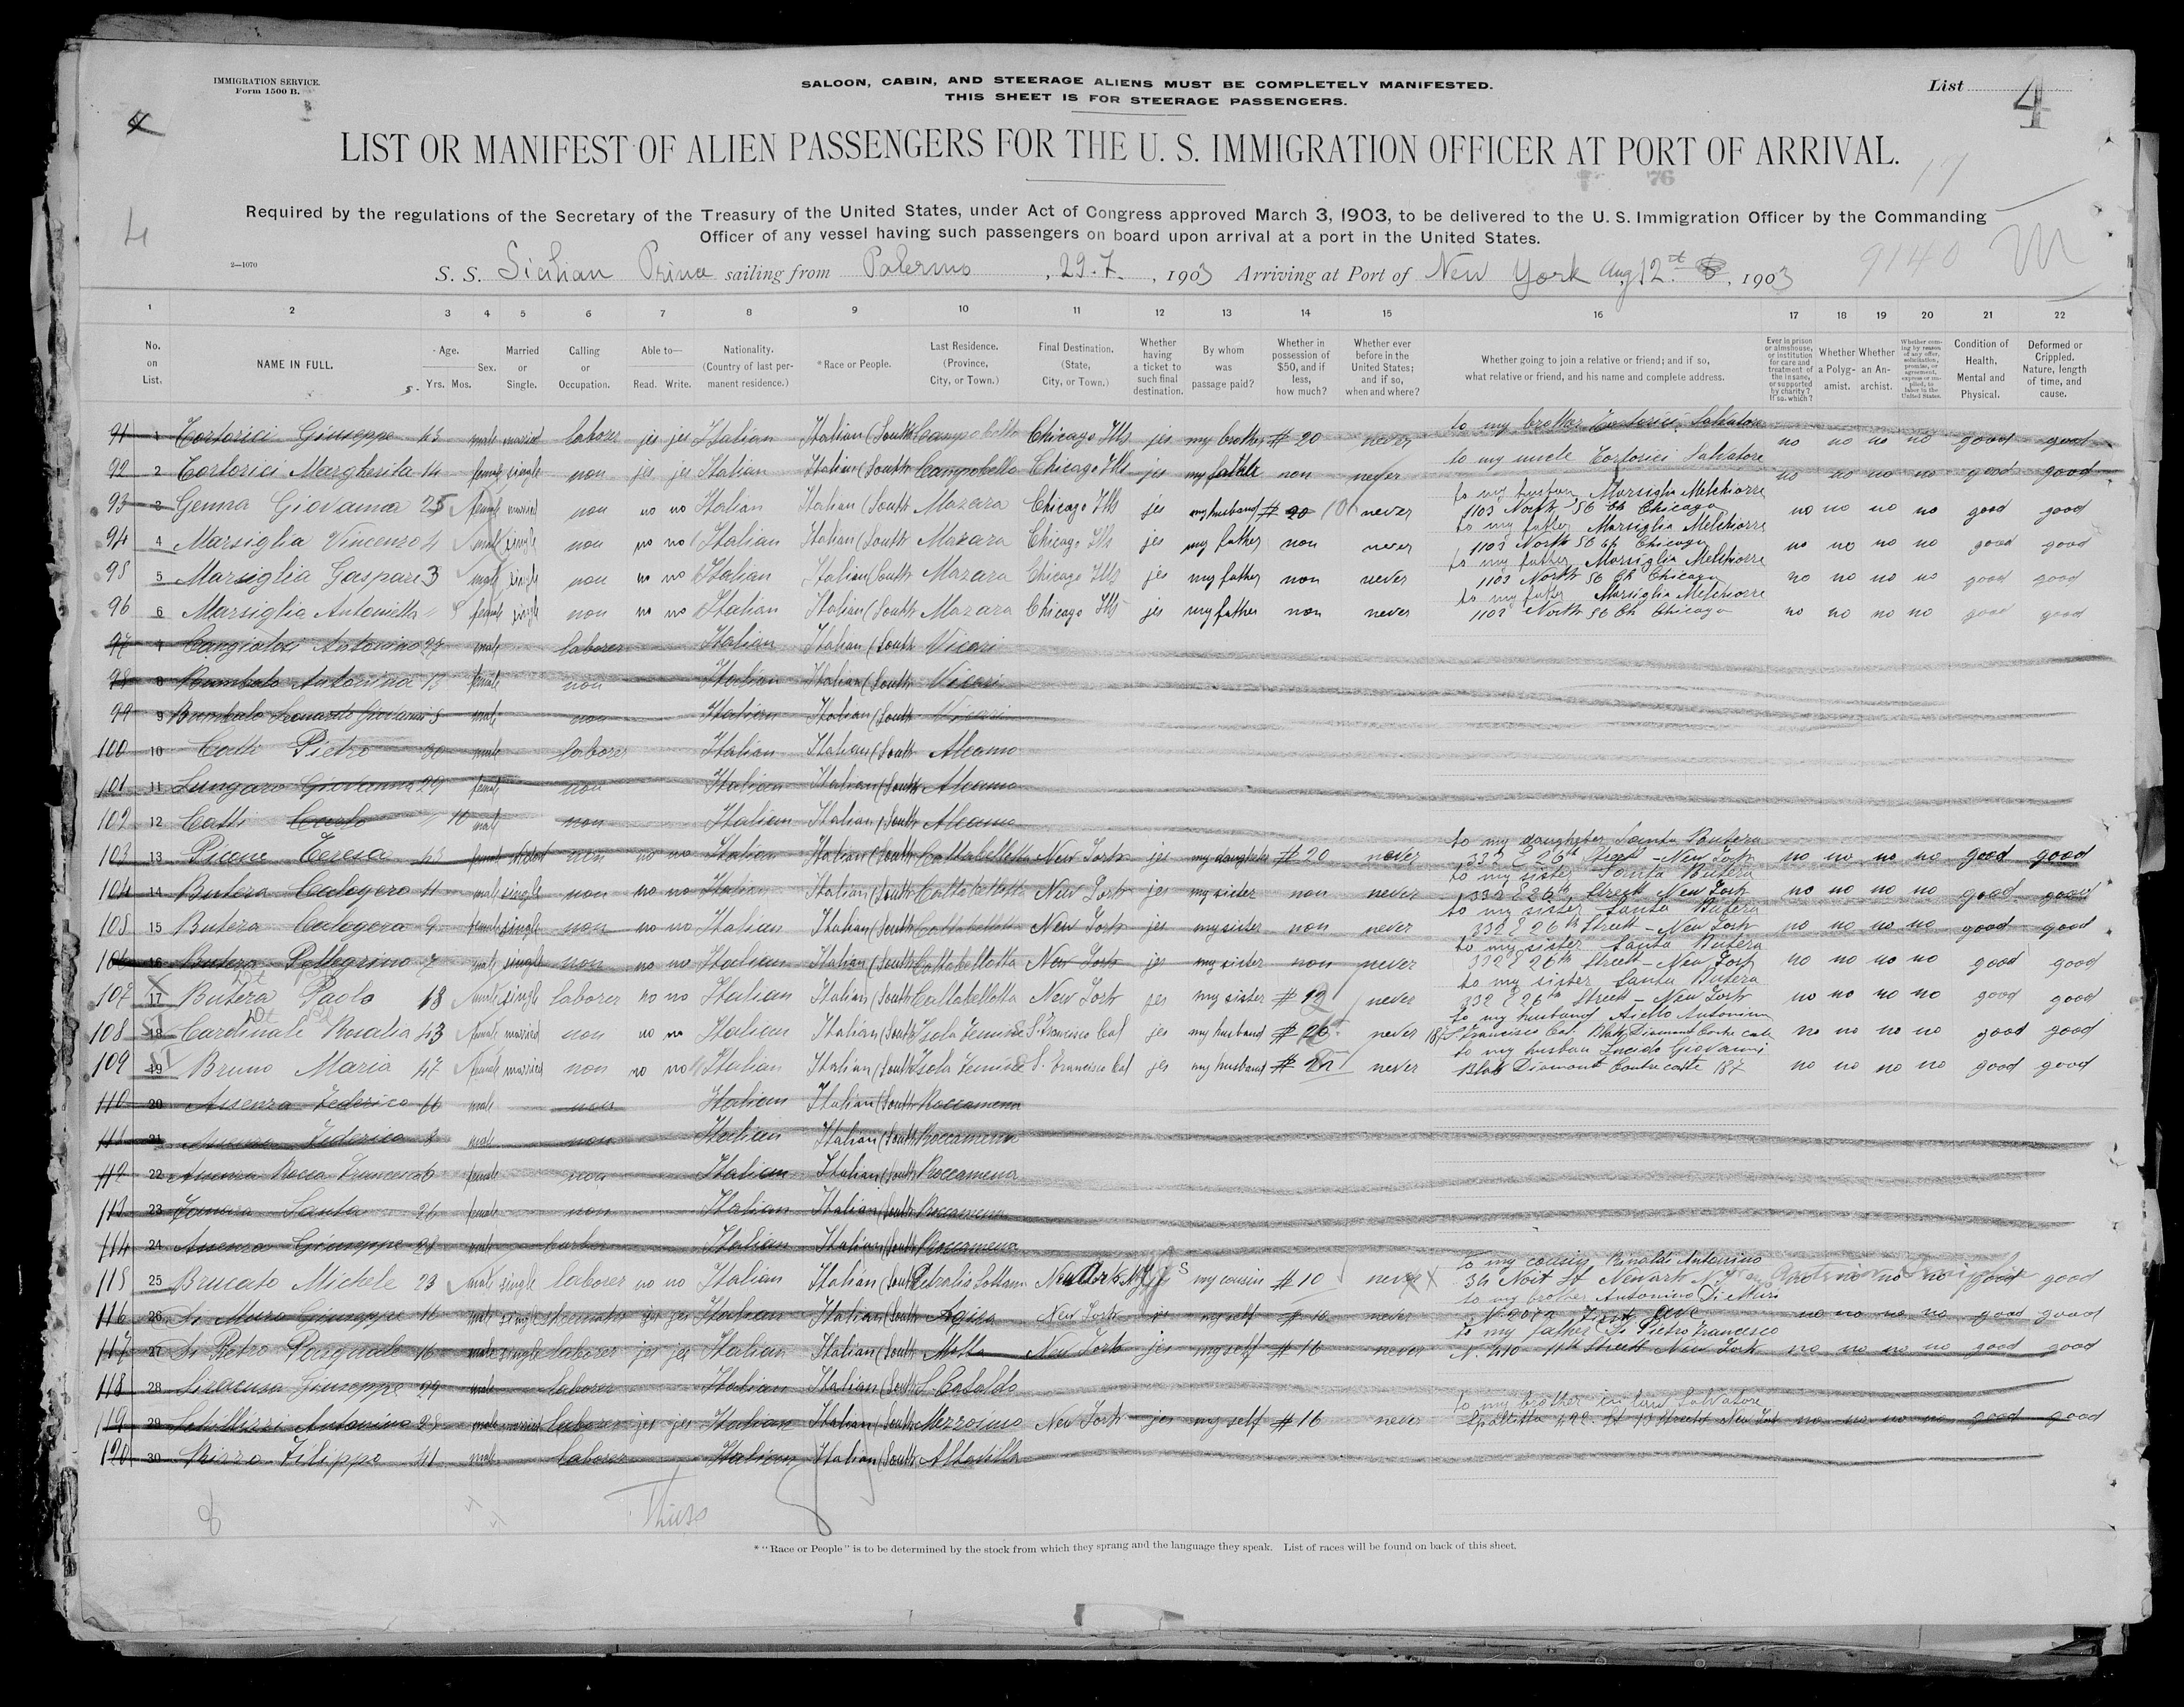 IMMIGRATION SERVICE.
Form 1500 B.
SALOON, CABIN, AND STEERAGE ALIENS MUST BE COMPLETELY MANIFESTED.
THIS SHEET IS FOR STEERAGE PASSENGERS.
List 4
4
LIST OR MANIFEST OF ALIEN PASSENGERS FOR THE U. S. IMMIGRATION OFFICER AT PORT OF ARRIVAL.
76
Required by the regulations of the Secretary of the Treasury of the United States, under Act of Congress approved March 3, 1903, to be delivered to the U. S. Immigration Officer by the Commanding
Officer of any vessel having such passengers on board upon arrival at a port in the United States.
4
9140
2—1070
S. S. Sicilian Prince sailing from Palermo, 29.7., 1903 Arriving at Port of New York Aug 12, 1903
1 2 3 4 5 6 7 8 9 10 11 12 13 14 15 16 17 18 19 20 21 22
No. on List.
NAME IN FULL.
Age. Yrs. Mos.
Sex.
Married or Single.
Calling or Occupation.
Able to— Read. Write.
Nationality. (Country of last permanent residence.)
*Race or People.
Last Residence. (Province, City, or Town.)
Final Destination. (State, City, or Town.)
Whether having a ticket to such final destination.
By whom was passage paid?
Whether in possession of $50, and if less, how much?
Whether ever before in the United States; and if so, when and where?
Whether going to join a relative or friend; and if so, what relative or friend, and his name and complete address.
Ever in prison or almshouse, or institution for care and treatment of the insane, or supported by charity? If so, which?
Whether a Polygamist.
Whether an Anarchist.
Whether coming by reason of any offer, solicitation, promise, or agreement, express or implied, to labor in the United States.
Condition of Health, Mental and Physical.
Deformed or Crippled. Nature, length of time, and cause.
91 1 Tortorici Giuseppe 43 male married laborer jes jes Italian Italian (South Campobello Chicago Ills jes my brother # 20 never to my brother Tortorici Salvatore no no no no good good
92 2 Tortorici Margherita 14 female single non jes jes Italian Italian (South Campobello Chicago Ills jes my father non never to my uncle Tortorici Salvatore no no no no good good
93 3 Genna Giovanna 25 female married non no no Italian Italian (South Mazara Chicago Ills jes my husband # 20 10 never to my husban Marsiglia Melchiorre 1103 North 56 Ch Chicago no no no no good good
94 4 Marsiglia Vincenzo 4 male single non no no Italian Italian (South Mazara Chicago Ills jes my father non never to my father Marsiglia Melchiorre 1103 North 56 Ch Chicago no no no no good good
95 5 Marsiglia Gaspare 3 male single non no no Italian Italian (South Mazara Chicago Ills jes my father non never to my father Marsiglia Melchiorre 1103 North 56 Ch Chicago no no no no good good
96 6 Marsiglia Antonietta female single non no no Italian Italian (South Mazara Chicago Ills jes my father non never to my father Marsiglia Melchiorre 1103 North 56 Ch Chicago no no no no good good
97 7 Cangialosi Antonino male laborer Italian Italian (South Vicari
98 8 Bumbalo Antonina 13 female non Italian Italian (South Vicari
99 9 Bumbalo Leonardo Giovanni male non Italian Italian (South Vicari
100 10 Catti Pietro 30 male laborer Italian Italian (South Alcamo
101 11 Lungaro Giovanna 29 female non Italian Italian (South Alcamo
102 12 Catti Carlo 10 male non Italian Italian (South Alcamo
103 13 Picone Teresa 43 female non no no Italian Italian (South Caltabellotta New York jes my daughter # 20 never to my daughter Santa Butera 332 E 26th Street - New York no no no no good good
104 14 Butera Calogero 11 male single non no no Italian Italian (South Caltabellotta New York jes my sister non never to my sister Santa Butera 332 E 26th Street New York no no no no good good
105 15 Butera Calogera 9 female single non no no Italian Italian (South Caltabellotta New York jes my sister non never to my sister Santa Butera 332 E 26th Street - New York no no no no good good
106 16 Butera Pellegrino 7 male single non no no Italian Italian (South Caltabellotta New York jes my sister non never to my sister Santa Butera 332 E 26th Street - New York no no no no good good
107 17 Butera Paolo 18 male single laborer no no Italian Italian (South Caltabellotta New York jes my sister # 12 never to my sister Santa Butera 332 E 26th Street - New York no no no no good good
108 18 Cardinale Rosalia 43 female married non no no Italian Italian (South Isola Femine S. Francisco Cal jes my husband # never to my husband Aiello Antonino S. Francisco Cal. Black Diamond no no no no good good
109 19 Bruno Maria 47 female married non no no Italian Italian (South Isola Femine S. Francisco Cal jes my husband # never to my husban Lucido Giovanni Black Diamont 187 no no no no good good
110 20 Assenza Federico male non Italian Italian (South Roccamena
111 21 Assenza Federico male non Italian Italian (South Roccamena
112 22 Assenza Rocca Francesca 6 female non Italian Italian (South Roccamena
113 23 Santa 26 female non Italian Italian (South Roccamena
114 24 Assenza Giuseppe male barber Italian Italian (South Roccamena
115 25 Brucato Michele 23 male single laborer no no Italian Italian (South Petralia Sottana Newark N.J. my cousin # 10 never to my cousin Rinaldi Antonino 34 Newark N.J. no no no no good good
116 26 Di Muro Giuseppe 16 male single jes jes Italian Italian (South New York jes my self # 10 never to my brother Antonino Di Muri First Ave no no no no good good
117 27 Di Pietro Pasquale 16 male single laborer jes jes Italian Italian (South New York jes my self # 16 never to my father Di Pietro Francesco N. 410 - 11th Street New York no no no no good good
118 28 Siracusa Giuseppe male laborer Italian Italian (South S. Cataldo
119 29 Antonino male married laborer jes jes Italian Italian (South Mezzoiuso New York jes my self # 16 never to my brother in law Salvatore Street New York no no no no good good
120 30 Filippo 41 male laborer Italian Italian (South Altavilla
* "Race or People" is to be determined by the stock from which they sprang and the language they speak. List of races will be found on back of this sheet.